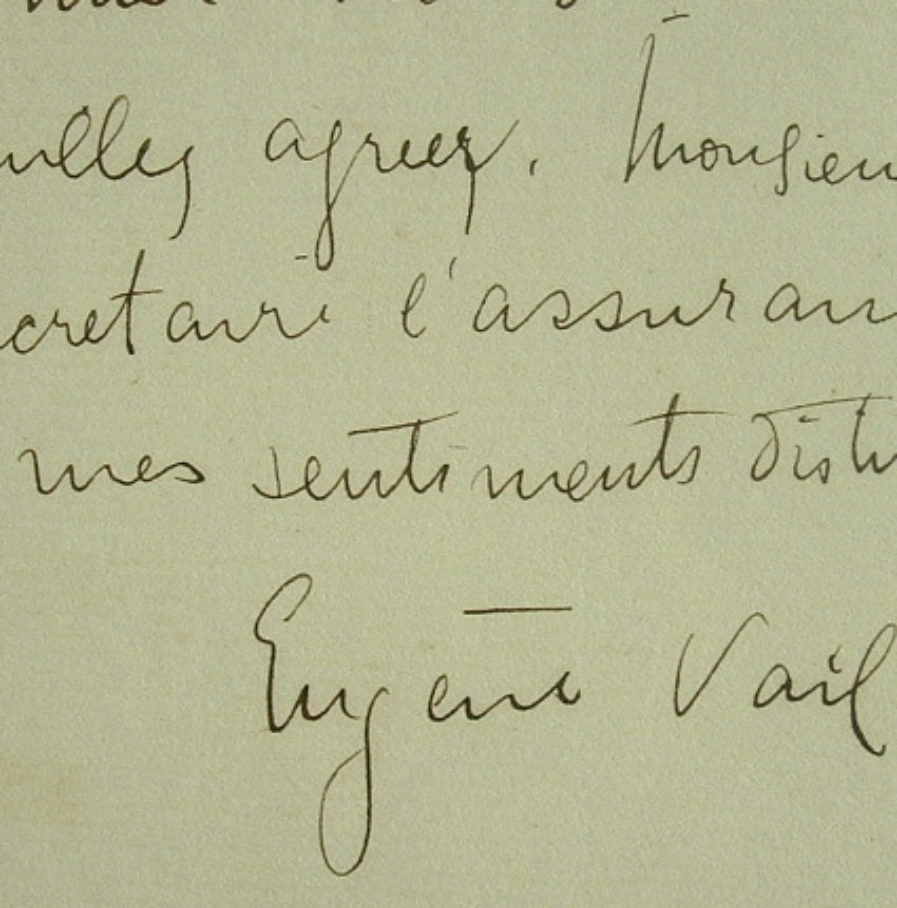 uillez agréer, Monsieu
cretaire l'assuran
mes sentiments disti
Eugène Vail